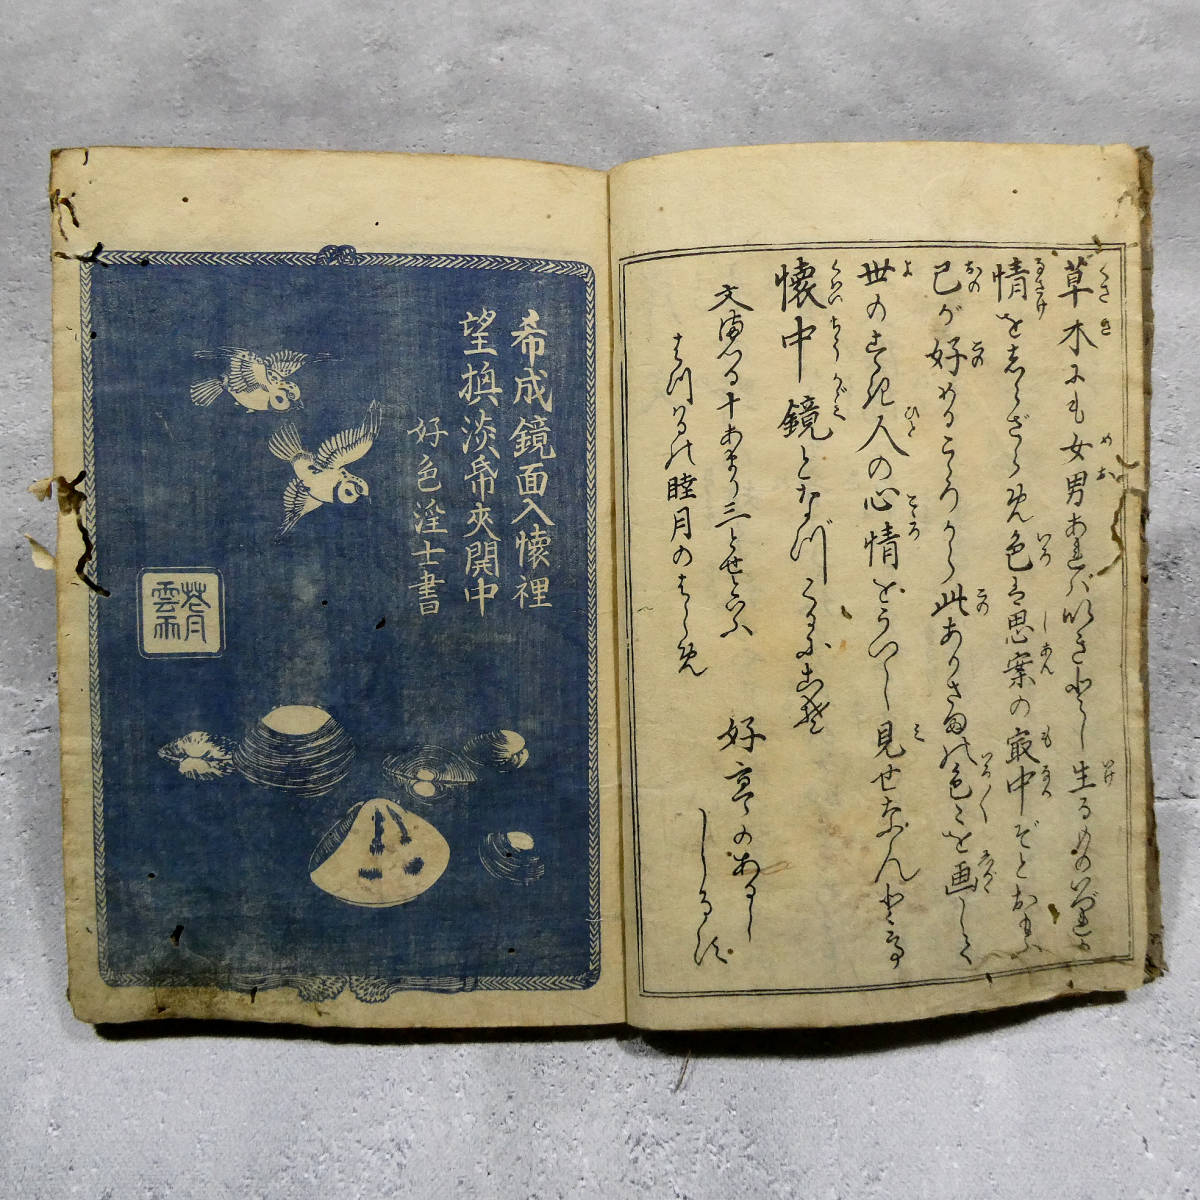 草木にも女男あれバいきとし生るものいづれか
情をしらざらん色は思案の最中ぞとおもふ
己が好めるこゝろから此ありさまの色〻を画して
世のすき人の心情をうつし見せなんとて
懐中鏡となづくるにこそ
文政
十あまり三とせといふ
はつはるの睦月のはじめ
好亭のあるじ
しるす
希成鏡面入懐裡
望換淡帋夾開中
好色淫士書
花月
雲雨